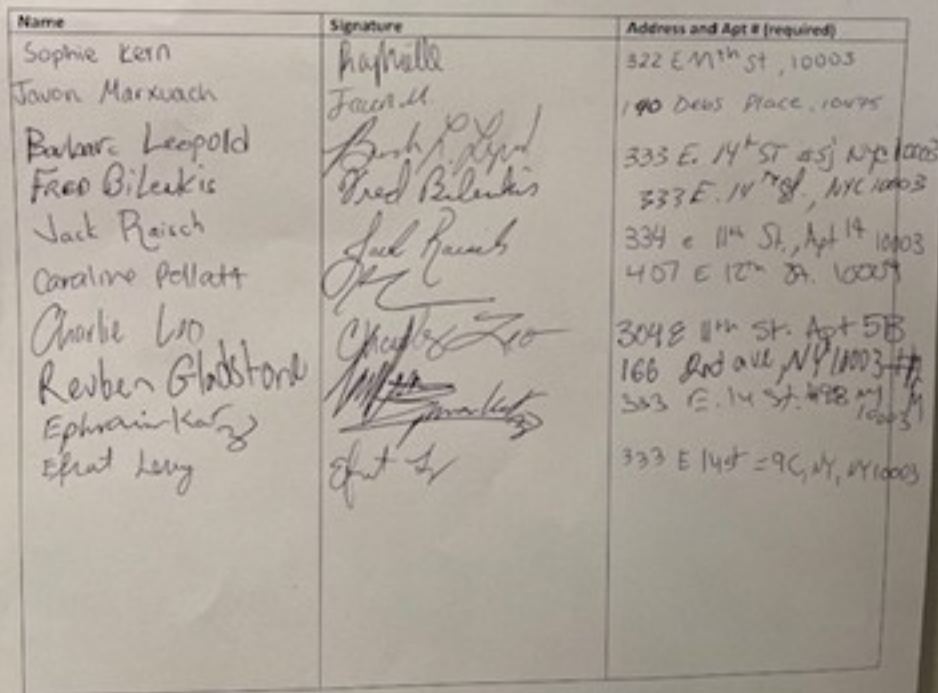 Name Signature Address and Apt # (required)
Sophie Kern Raphaille 322 E 11th St, 10003
Javon Marxuach Javon M. 190 Debs Place, 10475
Barbara Leopold 333 E. 14th ST #5J NYC 10003
FRED BiLenkis Fred Bilenkis 333 E. 14th St., NYC 10003
Jack Raisch Jack Raisch 334 e 11th St., Apt 14 10003
Caroline Pellatt 407 E 12th St. 10009
Charlie Leo Charles Leo 304 E 11th St. Apt 5B
Reuben Gladstone 166 2nd ave, NY 10003
Ephraim Katz 333 E. 14 St. #9B NY 10003
Efrat Levy Efrat 333 E 14st #9C, NY, NY 10003